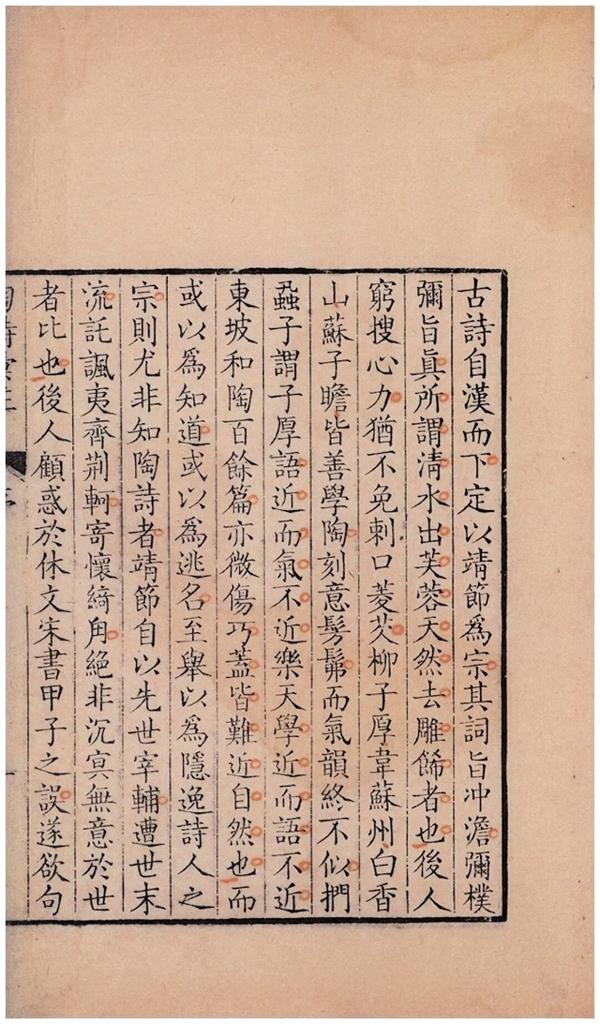 古詩自漢而下定以靖節爲宗其詞旨冲澹彌樸
彌旨眞所謂清水出芙蓉天然去雕餙者也後人
窮搜心力猶不免剌口菱芡柳子厚韋蘇州白香
山蘇子瞻皆善學陶刻意髣髴而氣韻終不似捫
蝨子謂子厚語近而氣不近樂天學近而語不近
東坡和陶百餘篇亦微傷巧蓋皆難近自然也而
或以爲知道或以爲逃名至舉以爲隱逸詩人之
宗則尤非知陶詩者靖節自以先世宰輔遭世末
流託諷夷齊荆軻寄懷綺角絕非沉冥無意於世
者比也後人顧惑於休文宋書甲子之誤遂欲句